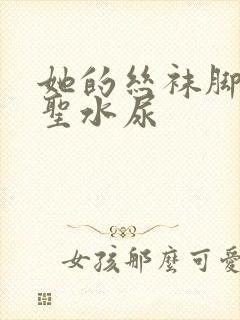 她的丝袜脚
聖水尿
女孩那麼可愛